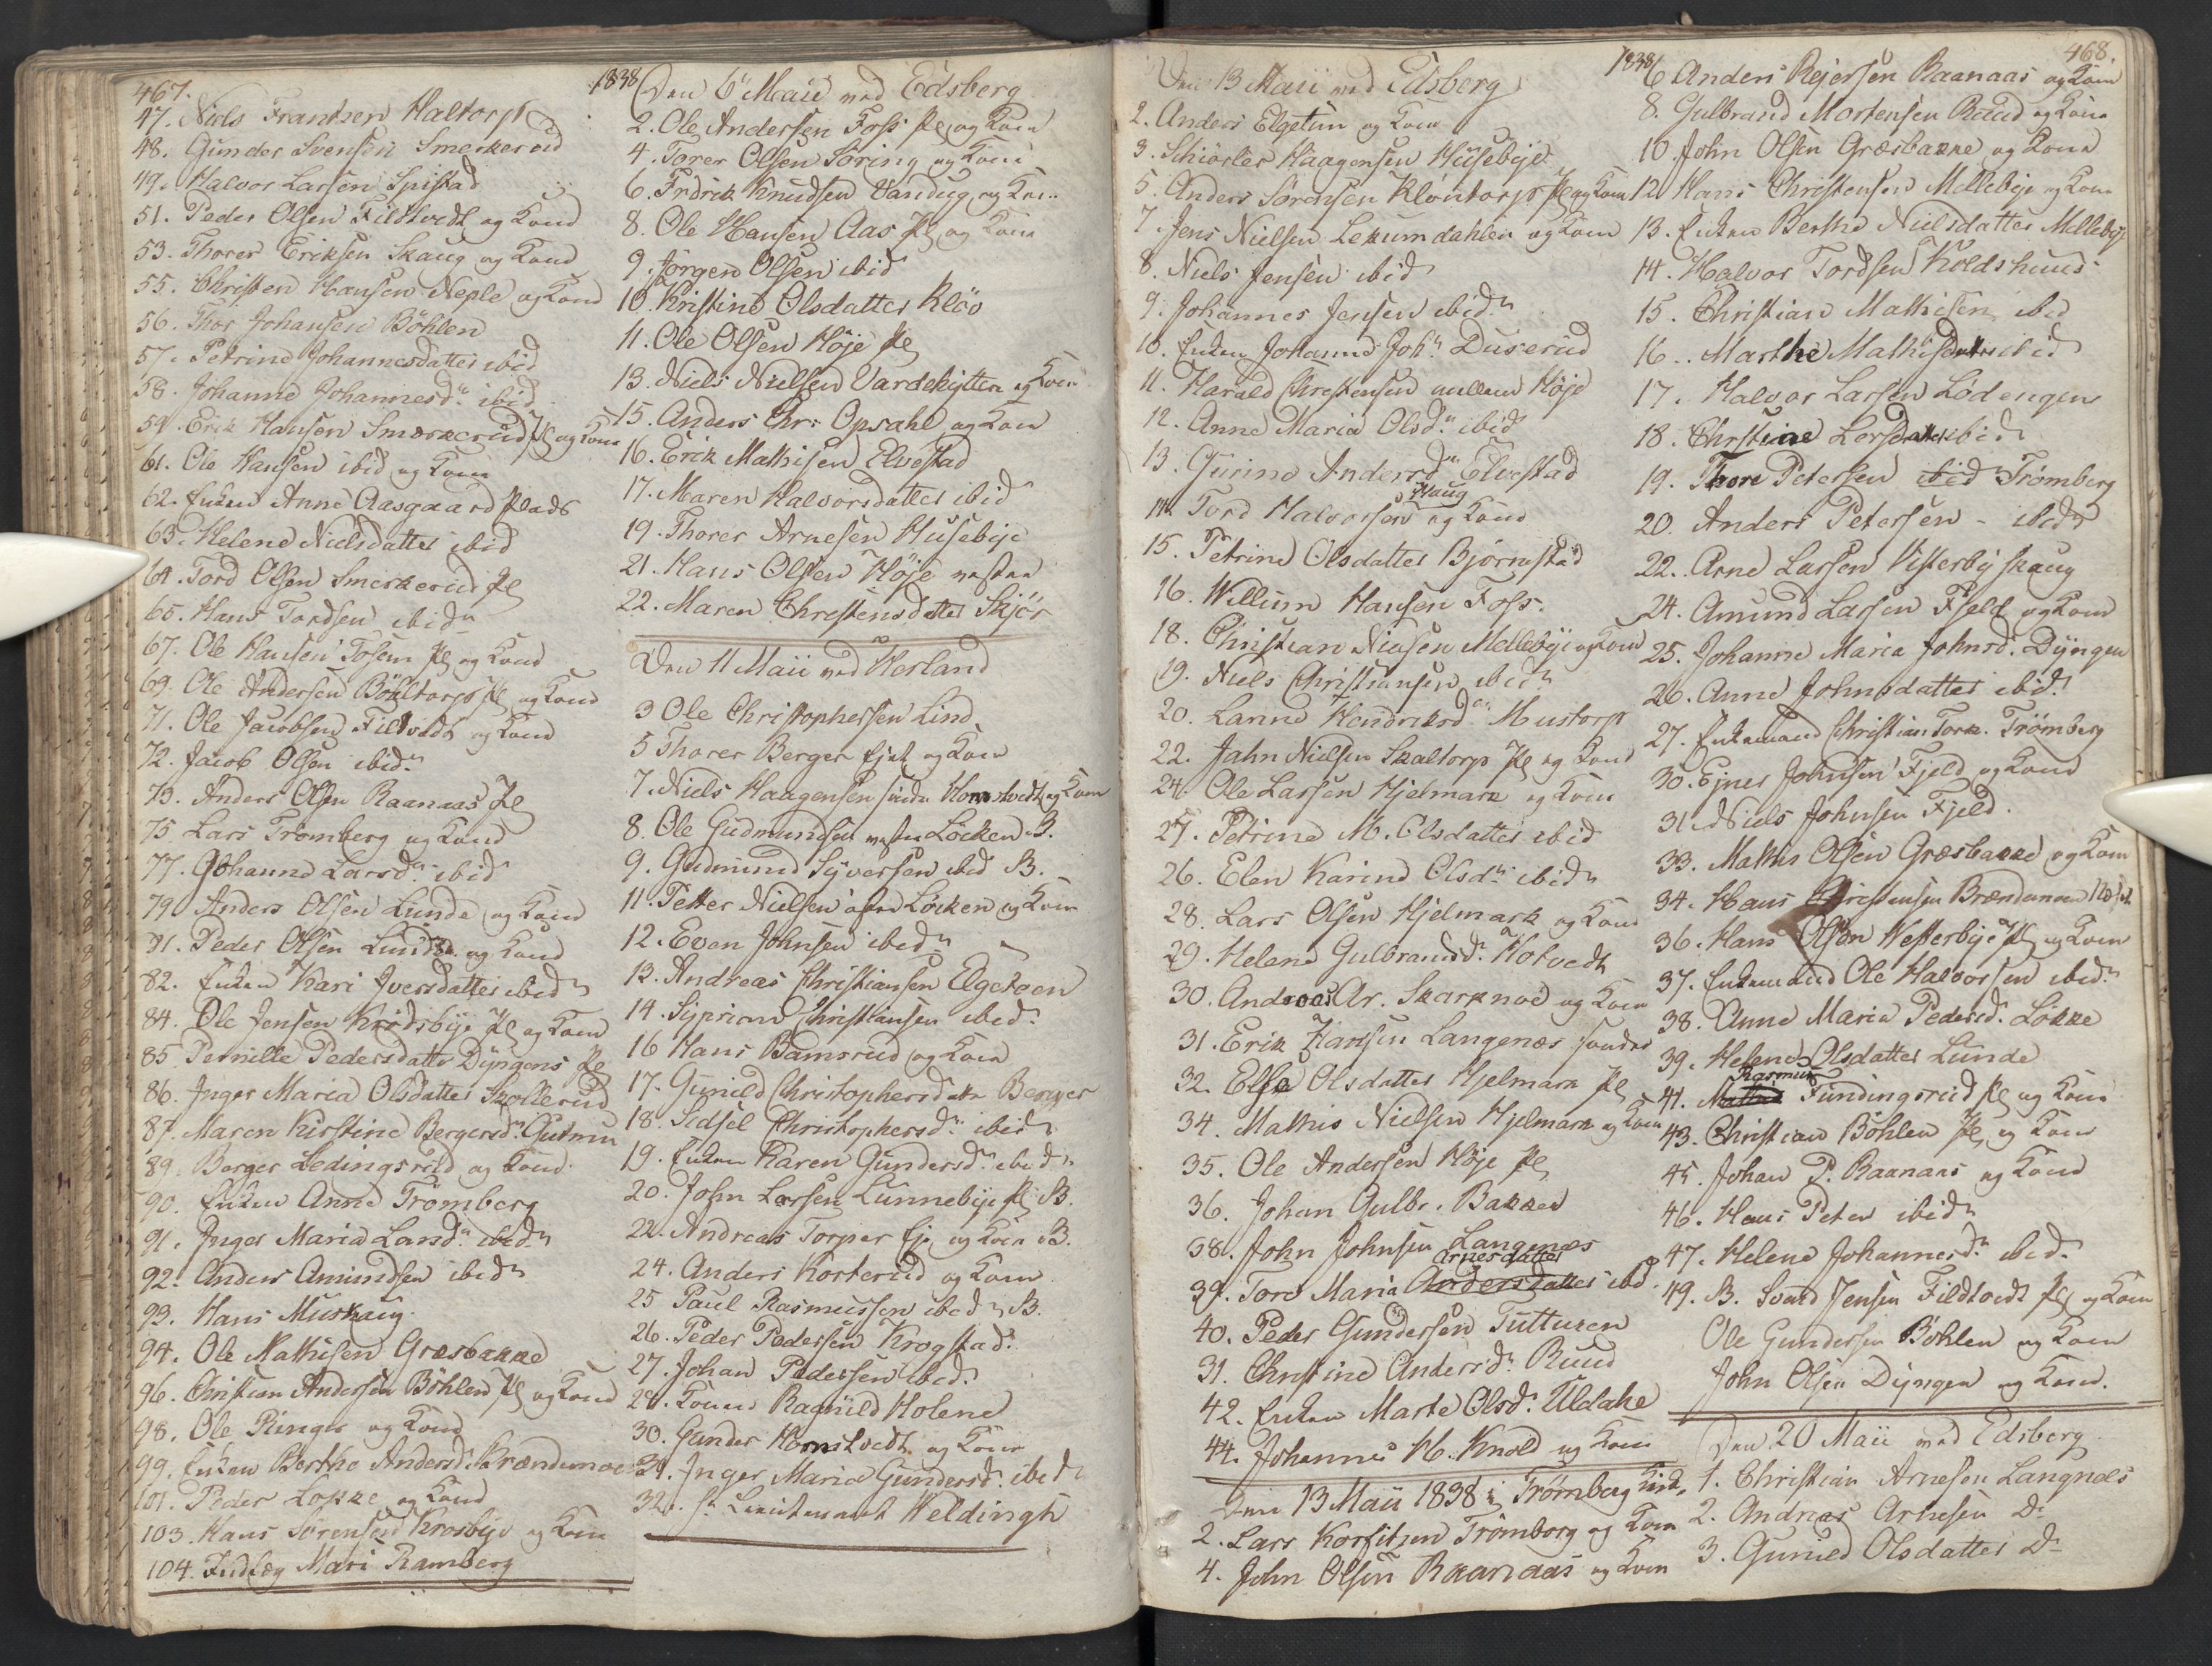 467.
47. Niels Frantsen Haltorp
48. Gunder Svensen Smerkerud
49. Halvor Larsen Spistad
51. Peder Olsen Fildtvedt og Kone
53. Thorer Eriksen Skaug og Kone
55. Christen Hansen Neple og Kone
56. Thor Johansen Böhlen
57. Petrine Johannesdatter ibid
58. Johanne Johannesd. ibid
59. Erik Hansen Smerkerud Pl og Kone
61. Ole Hansen ibid og Kone
62. Enken Anne Aasgaard Plads
63. Helene Nielsdatter ibid
64. Tord Olsen Smerkerud Pl
65. Hans Tordsen ibid
67. Ole Hansen Tosem Pl og Kone
69. Ole Andersen Böhltorp Pl og Kone
71. Ole Jacobsen Filtvedt og Kone
72. Jacob Olsen ibid
73. Anders Olsen Raanaas Pl
75 Lars Trömberg og Kone
77. Johanne Larsd. ibid
79 Anders Olsen Lunde og Kone
81. Peder Olsen Lunde og Kone
82. Enken Kari Iversdatter ibid
84. Ole Jensen Krodsbye Pl og Kone
85 Pernille Pedersdatter Dyngens Pl
86. Inger Maria Olsdatter Skollerud
87. Maren Kirstine Bergersd.
89. Berger Ledingsrud og Kone
90. Enken Anne Trömberg
91. Inger Maria Larsd. ibid
92. Anders Amundsen ibid
93. Hans Muskaug.
94. Ole Mathisen Græsbakke
96. Christian Andersen Böhlen Pl og Kone
98. Ole Ringer og Kone
99. Enken Berthe Andersd. Brændemoe
101. Peder Løkke og Kone
103. Hans Sørensen Krosbye og Kone
104. Indlæg Mari Ramberg
1838 Den 6 Maii ved Edsberg
2. Ole Andersen Foss Pl og Kone
4. Torer Olsen Söring og Kone
6. Fridrik Knudsen Vandug og Kone
8. Ole Hansen Aas Pl og Kone
9. Jörgen Olsen ibid
10. Kristine Olsdatter Klöv
11. Ole Olsen Höje Pl
13. Niels Nielsen Vardehytten og Kone
15. Anders Chr: Opsahl og Kone
16. Erik Mathisen Elvestad
17. Maren Halvorsdatter ibid
19. Thorer Arnesen Husebye
21. Hans Olsen Höje
22. Maren Christensdatter Skjör
Den 11 Maii ved Herland
3 Ole Christophersen Lind
5 Thorer Berger Ejet og Kone
7. Niels Haagensen Hornstvedt og Kone
8. Ole Gudmundsen Löcken B.
9. Gudmund Syversen ibid B.
11. Petter Nielsen Löcken og Kone
12. Even Johnsen ibid
13. Andreas Christiansen Elgetoen
14. Syprian Christiansen ibid.
16 Hans Bamsrud og Kone
17. Gunild Christophersdatter Berger
18. Sedsel Christophersd. ibid
19. Enken Karen Gundersd. ibid
20. John Larsen Lunnebye Pl B.
22. Andreas Torper Ej. og Kone B.
24. Anders Kosterud og Kone
25 Paul Rasmussen ibid B.
26. Peder Pedersen Krogstad.
27. Johan Pedersen ibid.
28. Konen Ragnild Holene
30. Gunder Hornstvedt og Kone
31. Inger Maria Gundersd. ibid
32. Hr. Lieutenant Weldingh
1838
468.
Den 13 Maii ved Edsberg
2. Anders Elgetun og Kone
3. Schiöster Haagensen Husebye
5. Anders Sörensen Klöntorp Pl og Kone
7. Jens Nielsen Lekumdahlen og Kone
8. Niels Jensen ibid
9. Johannes Jensen ibid.
10. Enken Johanne Joh. Duserud
11. Harald Christensen mellem Höje
12. Anne Maria Olsd. ibid
13. Gurine Andersd. Elvestad
14. Tord Halvorsen Haug og Kone
15. Petrine Olsdatter Bjørnstad
16. Willum Hansen Foss.
18. Christian Nielsen Mellebye og Kone
19. Niels Christiansen ibid
20. Larine Hendriksd. Mustorp
22. John Nielsen Skaltorp Pl og Kone
24. Ole Larsen Hjelmark og Kone
25. Petrine M. Olsdatter ibid
26. Elen Karine Olsd. ibid
28. Lars Olsen Hjelmark og Kone
29. Helene Gulbrandsd. Hotvedt
30. Andreas Ar. Skarknoe og Kone
31. Erik Hansen Langenæs søndre
32. Else Olsdatter Hjelmark Pl
34. Mathis Nielsen Hjelmark og Kone
35. Ole Andersen Höje Pl
36. Johan Gulbr. Bakken
38. John Johnsen Langenæs
39. Tore Maria Andersdatter Arnesdatter ibd.
40. Peder Gundersen Tutturen
31. Christine Andersd. Ruud
42. Enken Marte Olsd. Uldahe
44. Johannes H. Knold og Kone
Den 13 Maii 1838 i Trömberg Kirk.
2. Lars Korfitzen Trömborg og Kone
4. John Olsen Raanaas og Kone
6. Anders Rejersen Raanaas og Kone
8. Gulbrand Mortensen Ruud og Kone
10. John Olsen Græsbakke og Kone
12. Hans Christensen Mellebye og Kone
13. Enken Berthe Nielsdatter Mellebye
14. Halvor Tordsen Koldshuus
15. Christian Mathisen ibid
16. Marthe Mathisdatter ibid
17. Halvor Larsen Lødengen
18. Christine Larsdatter ibid
19. Thore Petersen ibid Trömberg
20. Anders Petersen - ibid
22. Arne Larsen Visterbyskaug
24. Amund Larsen Fjeld og Kone
25. Johanne Maria Johnsd. Dyngen
26. Anne Johnsdatter ibid.
27. Enkemand Christian Tork. Trömberg
30. Ejner Johnsen Fjeld og Kone
31. Niels Johnsen Fjeld.
33. Mathis Olsen Græsbakke og Kone
34. Hans Christensen Brændemoe
36. Hans Olsen Westerbye Pl og Kone
37. Enkemand Ole Halvorsen ibid.
38. Anne Maria Pedersd. Lökke
39. Helene Olsdatter Lunde
41. Rasmus Fundingsrud Pl og Kone
43. Christian Böhlen Pl og Kone
45. Johan P. Raanaas og Kone
46. Hans Peter ibid
47. Helene Johannesd. ibid.
49. B. Svend Jensen Fildtvedt Pl og Kone
Ole Gundersen Böhlen og Kone
John Olsen Dyngen og Kone.
Den 20 Maii ved Edsberg
1. Christian Arnesen Langnæs
2. Andreas Arnesen Do
3. Gunild Olsdatter Do